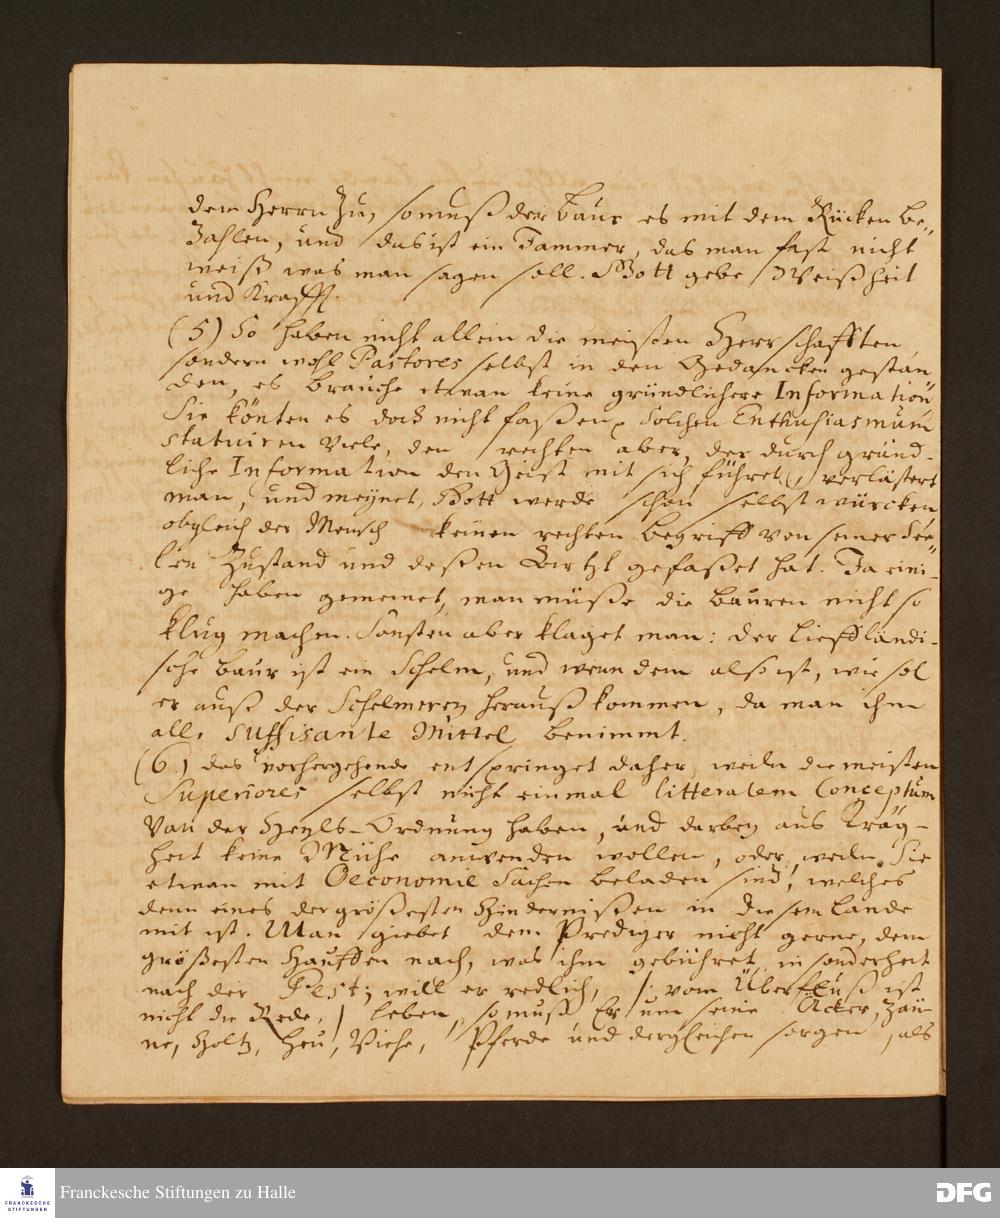 dem Herrn zu, so muß der Baur es mit dem Rücken be-
zahlen, und das ist ein Jammer, das man fast nicht
weiß was man sagen soll. Gott gebe Weißheit
und Krafft.
(5) So haben nicht allein die meisten Herrschafften,
sondern wohl Pastores selbst in den Gedancken gestan-
den, es brauche etwan keine gründlichere Information
Sie könten es doch nicht faßen. Solchen Enthusiasmum
statuiren viele, den rechten aber, der durch gründ-
liche Information den Geist mit sich führet, verlästert
man, und meynet, Gott werde schon selbst würcken,
obgleich der Mensch keinen rechten Begriff von seiner See-
len Zustand und deßen Artzt gefaßet hat. Ja eini-
ge haben gemeinet, man müße die Bauren nicht so
klug machen. Sonsten aber klaget man: der Liefländi-
sche Baur ist ein Schelm, und wenn dem alß ist, wie sol
er auß der Schelmerey herauß kommen, da man ihm
alle suffisante Mittel benimmt.
(6.) das vorhergehende entspringet daher, weiln die meisten
Superiores selbst nicht einmal litteralem Conceptum
von der Heyls-Ordnung haben, und darbey aus Träg-
heit keine Mühe anwenden wollen, oder, weiln Sie
etwan mit Oeconomie Sachen beladen sind, welches
denn eines der größesten Hindernißen in diesem Lande
mit ist. Man giebet dem Prediger nicht gerne, dem
größesten Hauffen nach, was ihm gebühret, insonderheit
nach der Pest; will er redlich, /: vom Überfluß ist
nicht die Rede, :/ leben, so muß Er um seine Äcker, Zäu-
ne, Holtz, Heu, Viehe, Pferde und dergleichen sorgen, als
Franckesche Stiftungen zu Halle
FRANCKESCHE
STIFTUNGEN
DFG